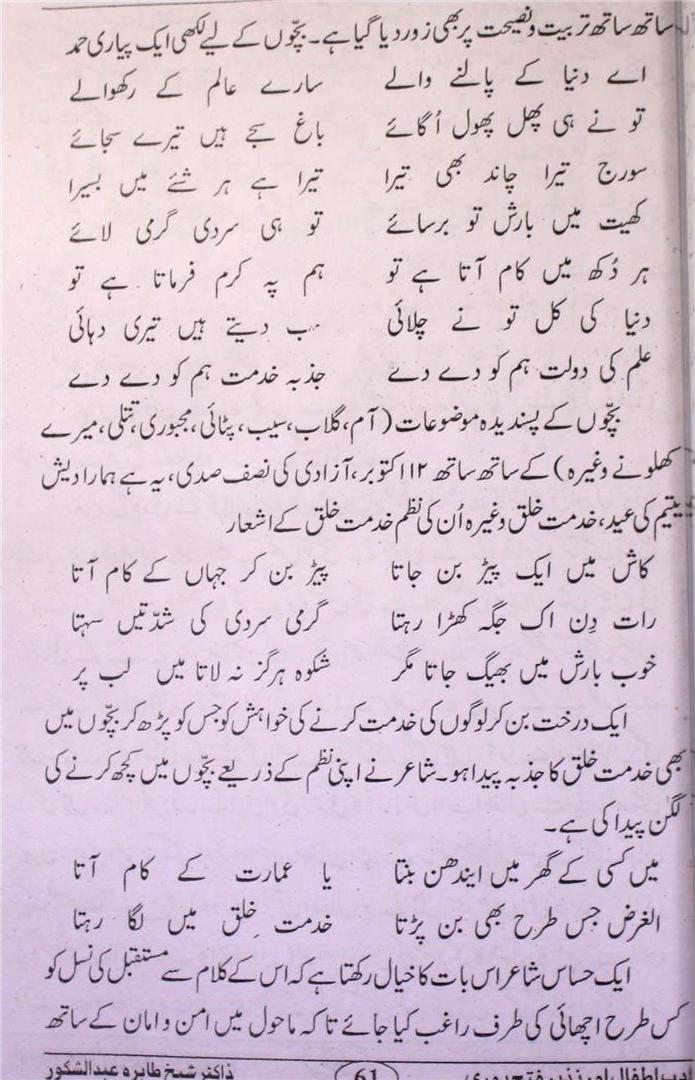 ساتھ ساتھ تربیت و نصیحت پر بھی زور دیا گیا ہے۔ بچّوں کے لیے لکھی ایک پیاری حمد
اے دنیا کے پالنے والے سارے عالم کے رکھوالے
تو نے ہی پھل پھول اُگائے باغ سجے ہیں تیرے سجائے
سورج تیرا چاند بھی تیرا تیرا ہے ہر شئے میں بسیرا
کھیت میں بارش تو برسائے تو ہی سردی گرمی لائے
ہر دُکھ میں کام آتا ہے تو ہم پہ کرم فرماتا ہے تو
دنیا کی کل تو نے چلائی سب دیتے ہیں تیری دہائی
علم کی دولت ہم کو دے دے جذبہ خدمت ہم کو دے دے
بچّوں کے پسندیدہ موضوعات (آم، گلاب، سیب، پٹائی، مجبوری، تتلی، میرے
کھلونے وغیرہ) کے ساتھ ساتھ ۱۲ اکتوبر، آزادی کی نصف صدی، یہ ہے ہمارا دیش
یتیم کی عید، خدمت خلق وغیرہ اُن کی نظم خدمت خلق کے اشعار
کاش میں ایک پیڑ بن جاتا پیڑ بن کر جہاں کے کام آتا
رات دِن اک جگہ کھڑا رہتا گرمی سردی کی شدّتیں سہتا
خوب بارش میں بھیگ جاتا مگر شکوہ ہرگز نہ لاتا میں لب پر
ایک درخت بن کر لوگوں کی خدمت کرنے کی خواہش کو جس کو پڑھ کر بچّوں میں
بھی خدمت خلق کا جذبہ پیدا ہو۔ شاعر نے اپنی نظم کے ذریعے بچّوں میں کچھ کرنے کی
لگن پیدا کی ہے۔
میں کسی کے گھر میں ایندھن بنتا یا عمارت کے کام آتا
الغرض جس طرح بھی بن پڑتا خدمت خلق میں لگا رہتا
ایک حساس شاعر اس بات کا خیال رکھتا ہے کہ اس کے کلام سے مستقبل کی نسل کو
کس طرح اچھائی کی طرف راغب کیا جائے تا کہ ماحول میں امن و امان کے ساتھ
ادب اطفال اور نذیر فتح پوری 61 ڈاکٹر شیخ طاہرہ عبدالشکور